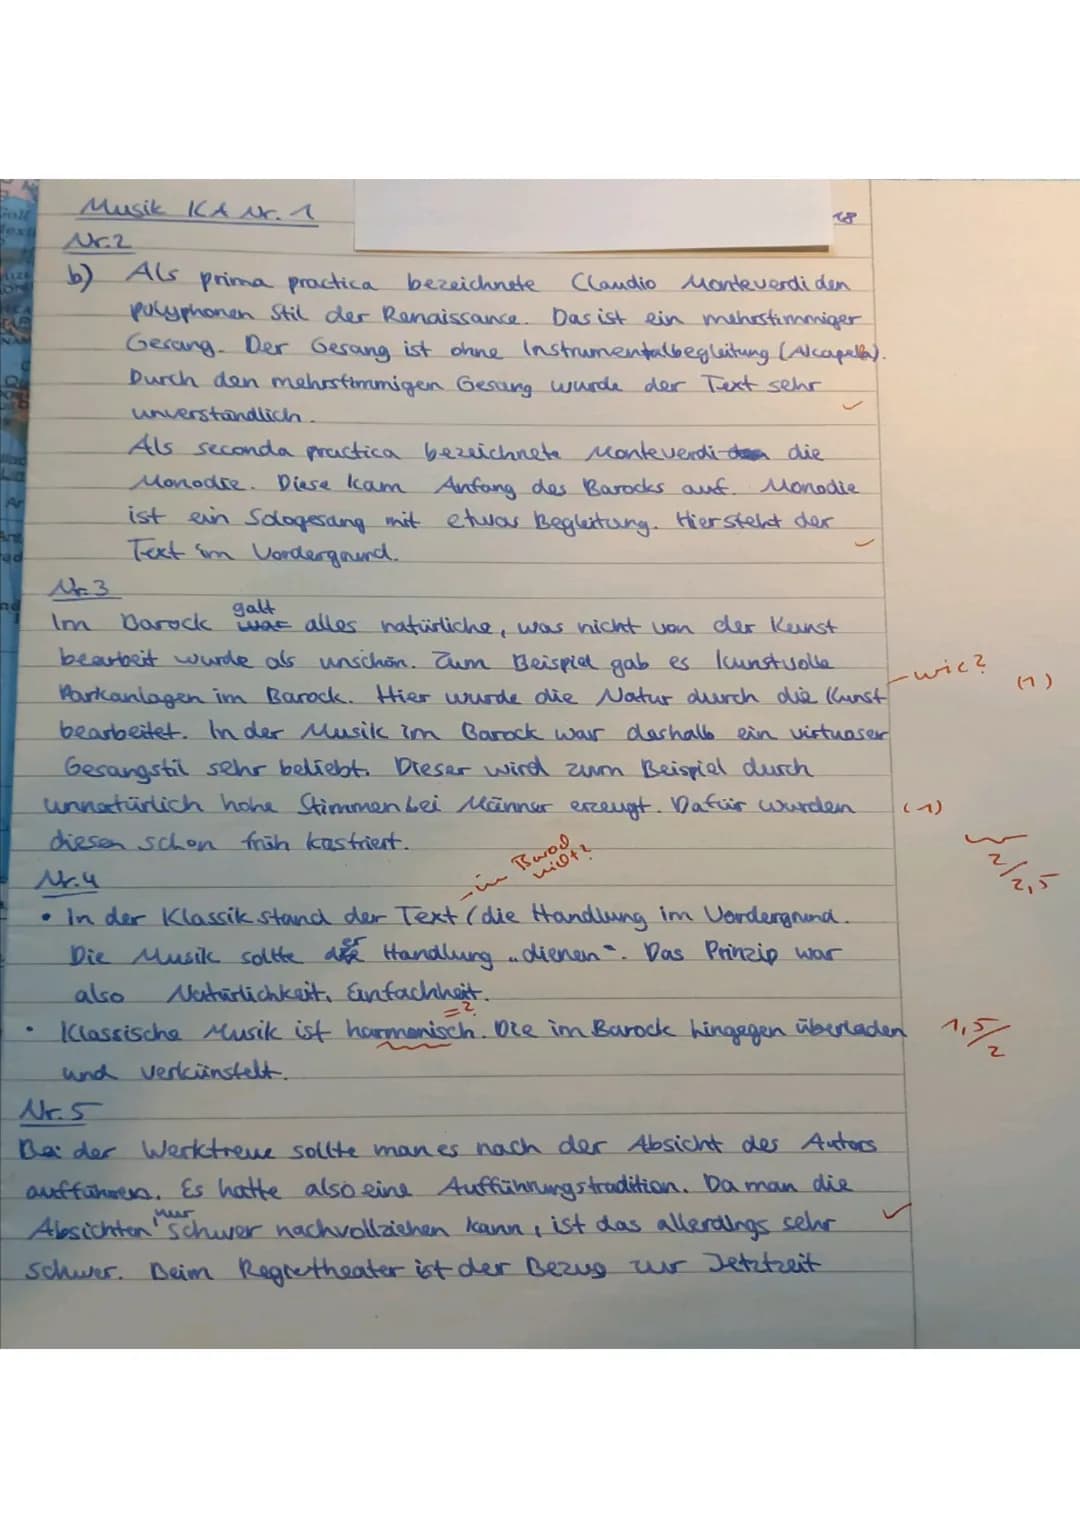 Musik KA Nr. 1
Nr.2
b) Als prima practica bezeichnete Claudio Monteverdi den
polyphonen Stil der Renaissance. Das ist ein mehrstimmiger
Gesang. Der Gesang ist ohne Instrumentalbegleitung (Alcapella).
Durch den mehrstimmigen Gesang wurde der Text sehr
unverständlich.
Als seconda practica bezeichnete Monteverdi die
Monodie. Diese kam Anfang des Barocks auf. Monodie
ist ein Sologesang mit etwas Begleitung. Hier steht der
Text im Vordergrund.
Nr.3
galt
Im Barock war alles natürliche, was nicht von der Kunst
bearbeit wurde als unschön. Zum Beispiel gab es kunstvolle
- wie? (1)
Parkanlagen im Barock. Hier wurde die Natur durch die Kunst
bearbeitet. In der Musik im Barock war deshalb ein virtuoser
Gesangstil sehr beliebt. Dieser wird zum Beispiel durch
unnatürlich hohe Stimmen bei Männer erzeugt. Dafür wurden (1)
diesen schon früh kastriert.
2/2,5
Nr.4
- im Barock nicht?
• In der Klassik stand der Text / die Handlung im Vordergrund.
Die Musik sollte der Handlung "dienen". Das Prinzip war
also Natürlichkeit, Einfachheit.
=?
• Klassische Musik ist harmonisch. Die im Barock hingegen überladen 1,5/2
und verkünstelt.
Nr.5
Bei der Werktreue sollte man es nach der Absicht des Autors
aufführen. Es hatte also eine Aufführungstradition. Da man die
nur
Absichten schwer nachvollziehen kann, ist das allerdings sehr
schwer. Beim Regietheater ist der Bezug zur Jetztzeit